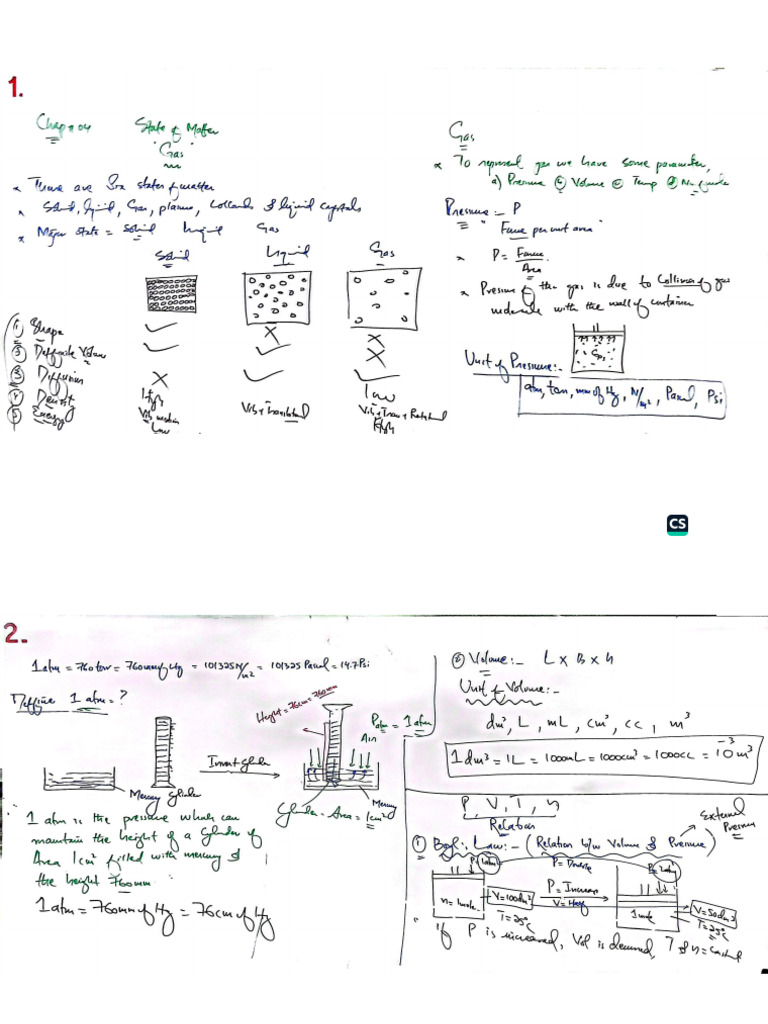 1.
Chapter 04 State of Matter
"Gas"
* There are Six states of matter
* Solid, liquid, Gas, plasma, Colloids & liquid crystals
* Major state = Solid Liquid Gas
Solid Liquid Gas
① Shape ✓ ✗ ✗
② Deffinite Volume ✓ ✓ ✗
③ Diffusion ✗ ✓ ✓
④ Density High Low
⑤ Energy Vib motion Vib + Translational Vib + Trans + Rotational
Low High
Gas
* To represent gas we have some parameter,
a) Pressure b) Volume c) Temp d) No. of mole
Pressure:- P
= "Force per unit area"
* P = Force
Area
* Pressure of the gas is due to Collision of gas
molecule with the wall of container
Gas
Unit of Pressure:-
atm, torr, mm of Hg, N/m², Pascal, Psi
CS
2.
1 atm = 760 torr = 760mm of Hg = 101325 N/m² = 101325 Pascal = 14.7 Psi
Deffine 1 atm = ?
Height = 76cm = 760mm
Patm = 1 atm
Air
Invert Cylinder
Mercury Cylinder
Mercury
Cylinder - Area = 1cm²
∴ 1 atm is the pressure which can
maintain the height of a Cylinder of
Area 1cm² filled with mercury &
the height 760mm
1 atm = 760mm of Hg = 76cm of Hg
② Volume:- L x B x h
Unit of Volume:-
dm³, L, mL, cm³, cc, m³
1 dm³ = 1L = 1000mL = 1000cm³ = 1000cc = 10⁻³ m³
P, V, T, n
Relation
External
Pressure
① Boyle's Law:- (Relation b/w Volume & Pressure)
P = 1atm P = Double P = 2atm
n = 1mole V = 100dm³ P = Increase 1mole V = 50dm³
T = 25°C V = Half T = 25°C
" if P is increased, Vol is decreased, T & n = Constant